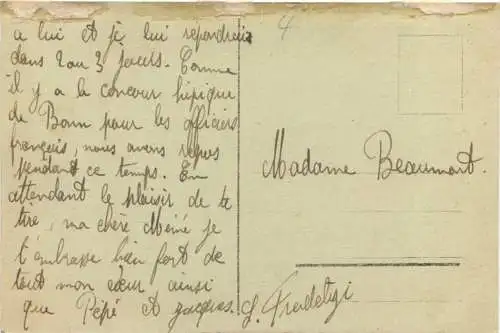 a lui et je lui repondrai
dans 2 ou 3 jours. Comme
il y a le concour hipique
de Bonn pour les officiers
français, nous avons repos
pendant ce temps. En
attendant le plaisir de te
lire, ma chère Mémé je
t'embrasse bien fort de
tout mon cœur ainsi
que Pépé et Jacques.
Madame Beaumont.